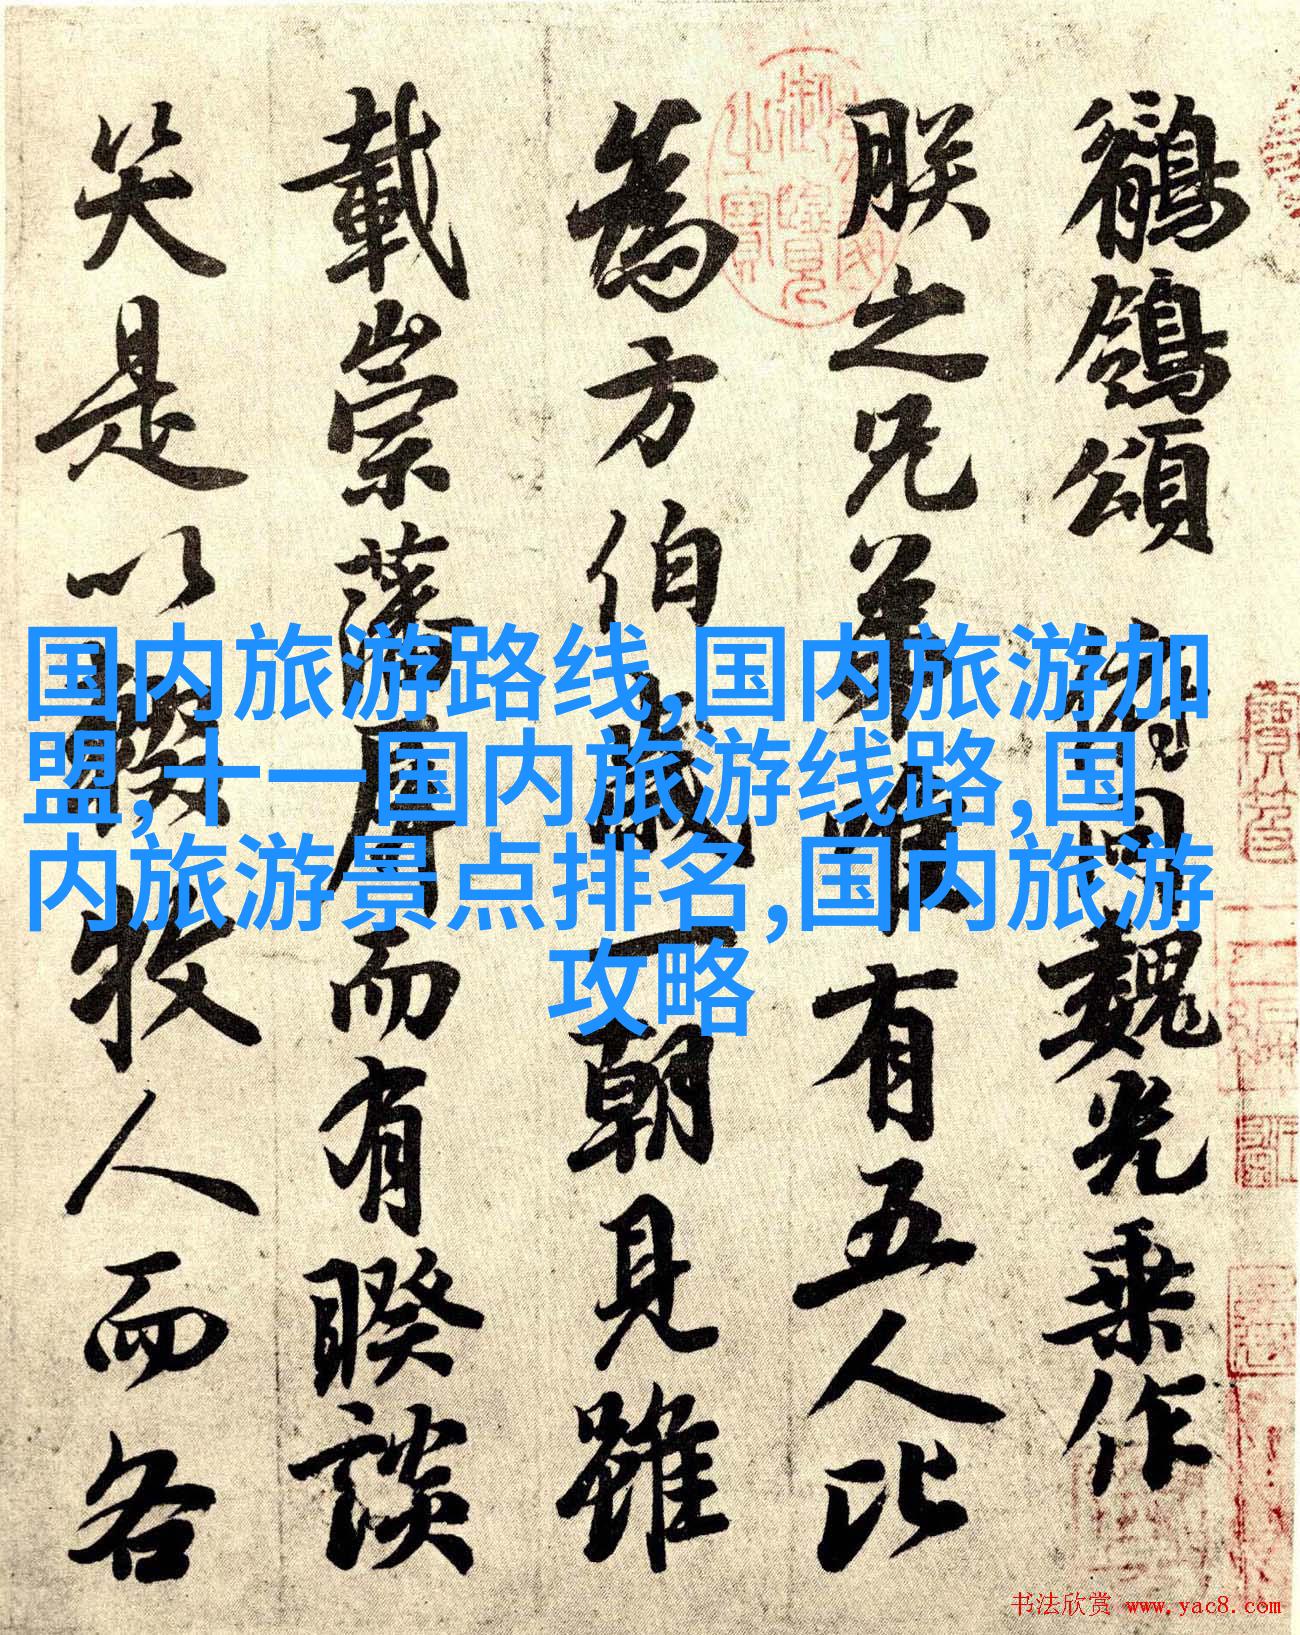 鶺鴒頌 俯同魏光乗作
朕之兄弟唯有五人比
為方伯歲一朝見雖
載崇藩屏而有睽談
笑是以輟牧人而各
国内旅游路线,国内旅游加
盟,十一国内旅游线路,国
内旅游景点排名,国内旅游
攻略
书法欣赏 www.yac8.com